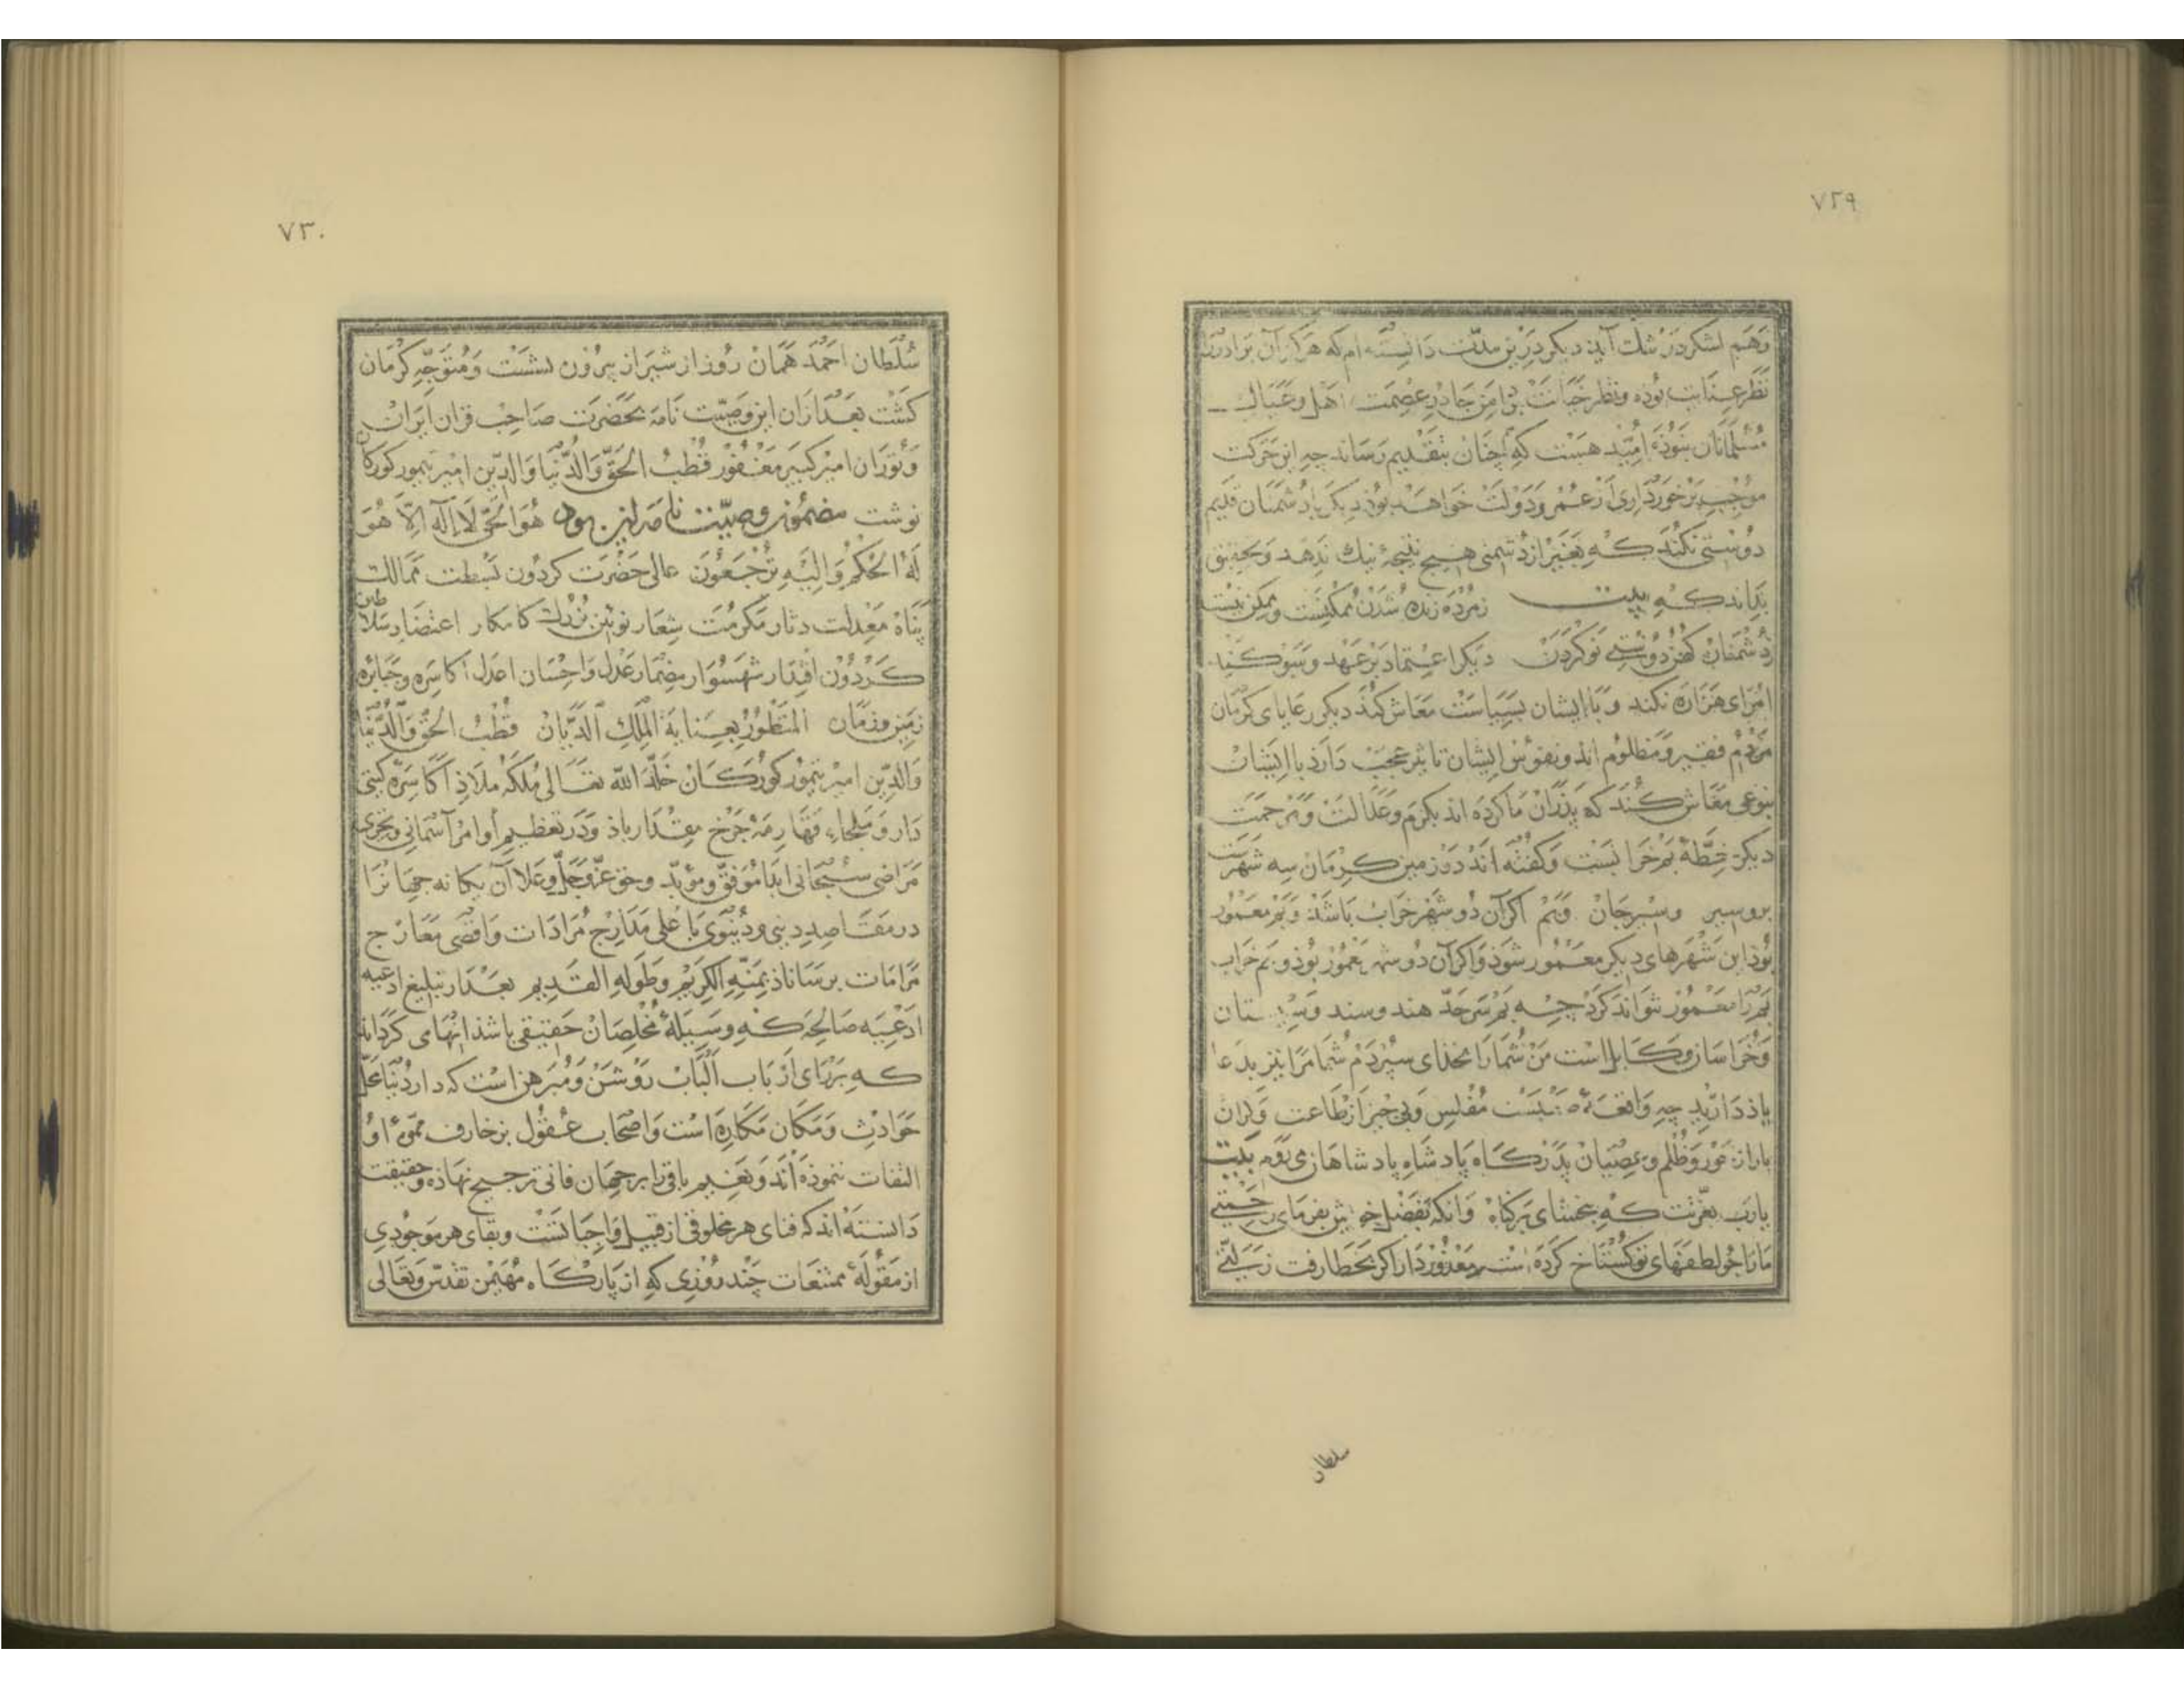 ٧٢٩
وَهَم لشکر در شک آیند دیکر درین مدّت دانسته ام که هرکز آن برادر را
نَظَر عنایت بوده و نظر خیانت بر امن جا در عصمت اهل و عیال
مُسلمانان ننموذه امید هست که آنچنان بتقدیم رساند چه این حرکت
موجب برخورداری از عمر و دولت خواهد بوذ دیکر با دشمنان قدیم
دوستی نکند که بغیر از دشمنی هیچ نتیجهٔ نیک ندهد و بحقیق
بداند که بیت زمرده زنده شدن ممکنست و ممکن نیست
ز دشمنان کهن دوستی نو کردن دیکر اعتماد بر عهد و سوکند
امرای هزاره نکند و با ایشان بسیاست معاش کند دیکر رعایای کرمان
مردم فقیر و مظلوم اند و نفوس ایشان تاثیر عجب دارد با ایشان
بنوعی معاش کند که پدران ما کرده اند بکرم و عدالت و مرحمت
دیکر خطّهٔ بم خرابست و کفته اند در زمین کرمان سه شهرست
بردسیر وسیرجان و بم اکر آن دو شهر خراب باشد و بم معمور
بوذ این شهرهای دیکر معمور شوذ و اکر آن دو شهر معمور بوذ و بم خراب
بم را معمور نتواند کرد چه بم سرحدّ هند و سند و سیستان
و خراسان و کابل است من شما را بخذای سپردم شما مرا نیز بدعا
یاذ دارید چه واقعهٔ صعبست مفلس و بی خبر از طاعت و کران
بار از جور و ظلم و عصیان بدرکاه پادشاه پادشاهان می روم بیت
یارب بعزتت که ببخشای بر کناه وانکه بفضل خویش بفرمای رحمتی
ما را چو لطفهای تو کستاخ کرده است معذور دار اکر بخطا رفت زلّتی
سلطان
٧٣٠
سلطان احمد همان روز از شیراز بیرون نشست و متوجّه کرمان
کشت بعد ازان این وصیّت نامه بحضرت صاحب قران ایران
و توران امیر کبیر مغفور قطب الحقّ والدّنیا والدّین امیر تیمور کورکان
نوشت مضمون وصیّت نامه این بود هو الحیّ لا اله الّا هو
له الحکم و الیه ترجعون عالی حضرت کردون بسطت ممالک
پناه معدلت دثار مکرمت شعار نویین بزرک کامکار اعتضاد سلاطین
کردون اقتدار شهسوار مضمار عدل و احسان اعدل اکاسره و جبابره
زمین و زمان المنظور بعنایة الملک الدّیّان قطب الحقّ والدّنیا
والدّین امیر تیمور کورکان خلّد الله تعالی ملکه ملاذ اکاسرهٔ کیتی
دار و ملجاء قهارمهٔ چرخ مقتدار باذ و در تعظیم اوامر آسمانی و تحرّی
مراضی سبحانی ابدا موفّق و مؤیّد و حق عزّ و جلّ و علا آن یکانه جهان را
در مقاصد دینی و دنیوی با علی مدارج مرادات و اقصی معارج
مرامات برساناد بمنّه الکریم و طوله القدیم بعد از تبلیغ ادعیه
ادعیه صالحه که وسیلهٔ مخلصان حقیقی باشذ انهای کرداند
که بر رای ارباب الباب روشن و مبرهن است که دار دنیا محلّ
حوادث و مکان مکاره است و اصحاب عقول بزخارف مموّهٔ او
التفات ننموذه اند و نعیم باقی را بر جهان فانی ترجیح نهاذه و حقیقت
دانسته اند که فنای هر مخلوقی از قبیل واجباتست و بقای هر موجودی
از مقولهٔ ممتنعات چند روزی که از بارکاه مهیمن تقدّس و تعالی